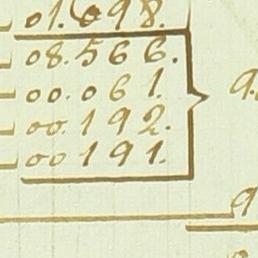 01.698.
08.566.
00.061. 9.
00.192.
00191.
9